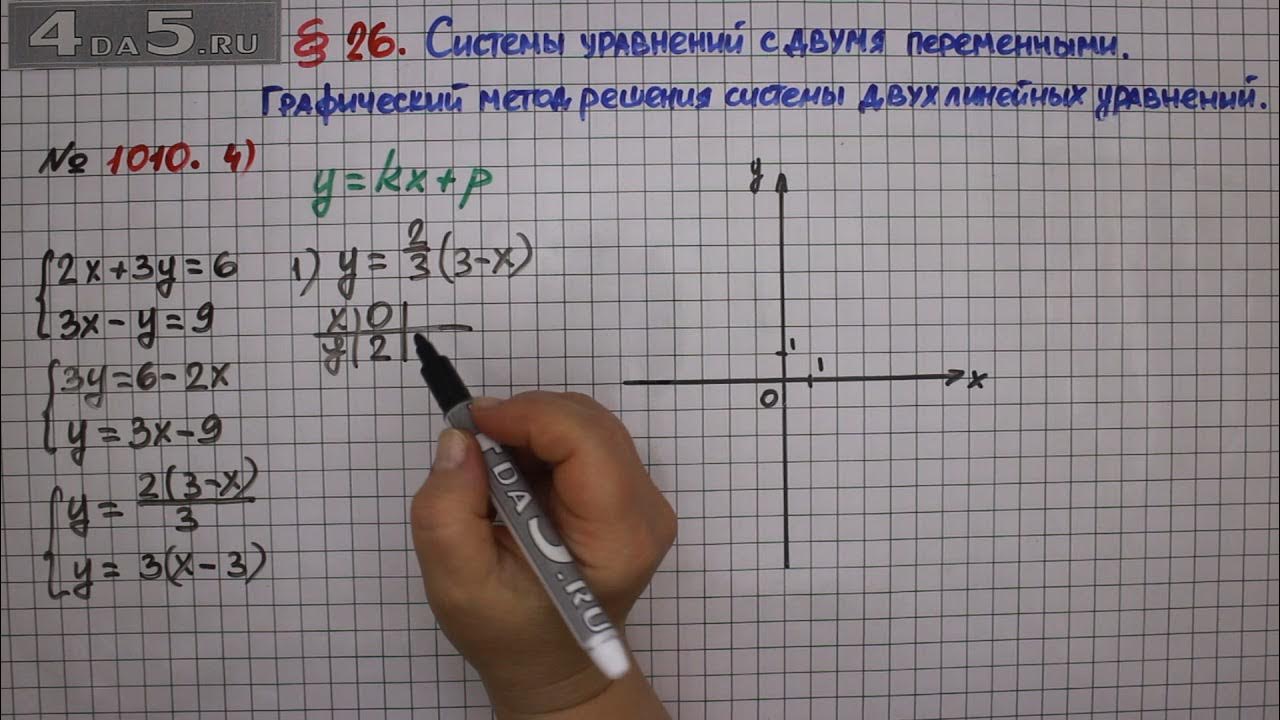 4DA5.RU
§ 26. Системы уравнений с двумя переменными.
Графический метод решения системы двух линейных уравнений.
№ 1010. 4)
y = kx + p
{2x + 3y = 6
3x - y = 9
{3y = 6 - 2x
y = 3x - 9
{y = 2(3-x)/3
y = 3(x - 3)
1) y = 2/3 (3-x)
x | 0 |
y | 2 |
y
1
1
0
x
4DA5.RU